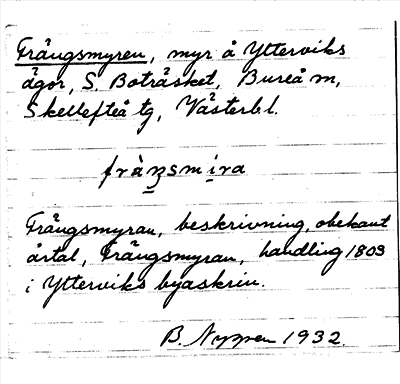 Trångsmyren, myr å Ytterviks
ägor, S. Boträsket, Bureå sn,
Skellefteå tg, Västerb. l.
fràŋsmira
Trångsmyran, beskrivning, obekant
årtal, Trångsmyran, handling 1803
i Ytterviks byaskrin.
B. Nygren 1932.